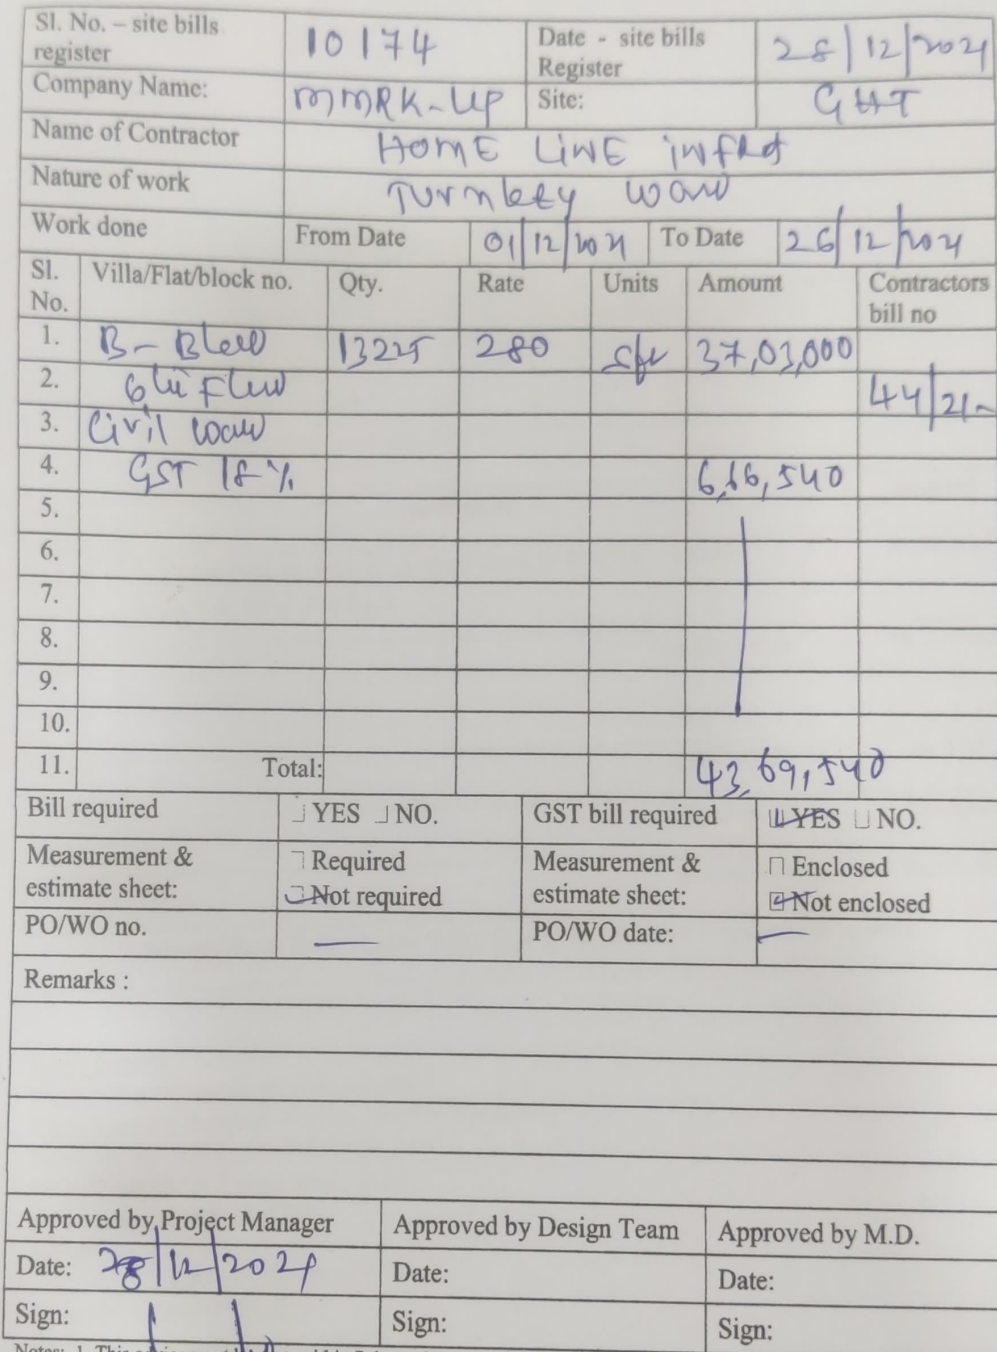 Sl. No. – site bills register 10174 Date - site bills Register 28/12/2021
Company Name: MMRK-UP Site: GHT
Name of Contractor HOME LINE infra
Nature of work Turnkey work
Work done From Date 01/12/2021 To Date 26/12/2021
Sl. No. Villa/Flat/block no. Qty. Rate Units Amount Contractors bill no
1. B-Block 13225 280 sft 37,03,000
2. 6th Floor 44/21-
3. Civil work
4. GST 18% 6,66,540
5.
6.
7.
8.
9.
10.
11. Total: 43,69,540
Bill required YES NO. GST bill required YES NO.
Measurement & estimate sheet: Required Not required Measurement & estimate sheet: Enclosed Not enclosed
PO/WO no. — PO/WO date: —
Remarks :
Approved by Project Manager Approved by Design Team Approved by M.D.
Date: 28/12/2021 Date: Date:
Sign: Sign: Sign: